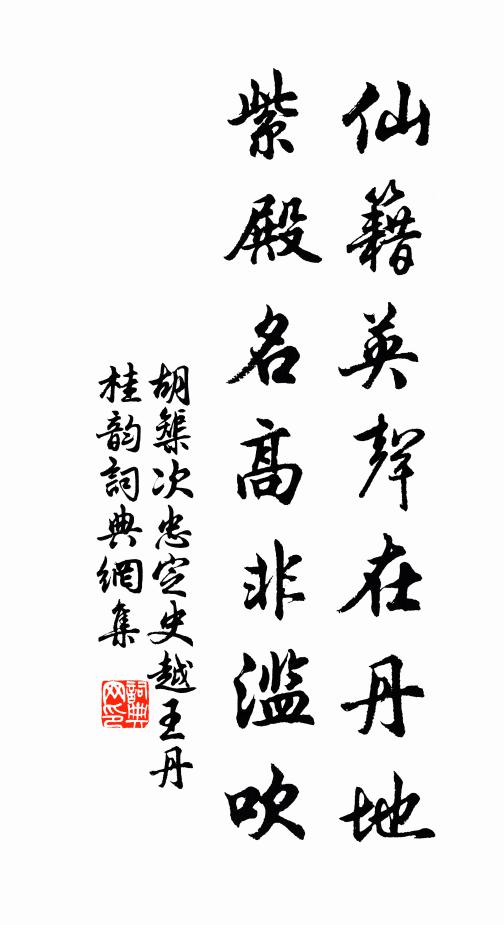 仙籍英聲在丹地
紫殿名高非濫吹
胡榘次忠定史越王丹
桂韵詞典網集
詞典
网印